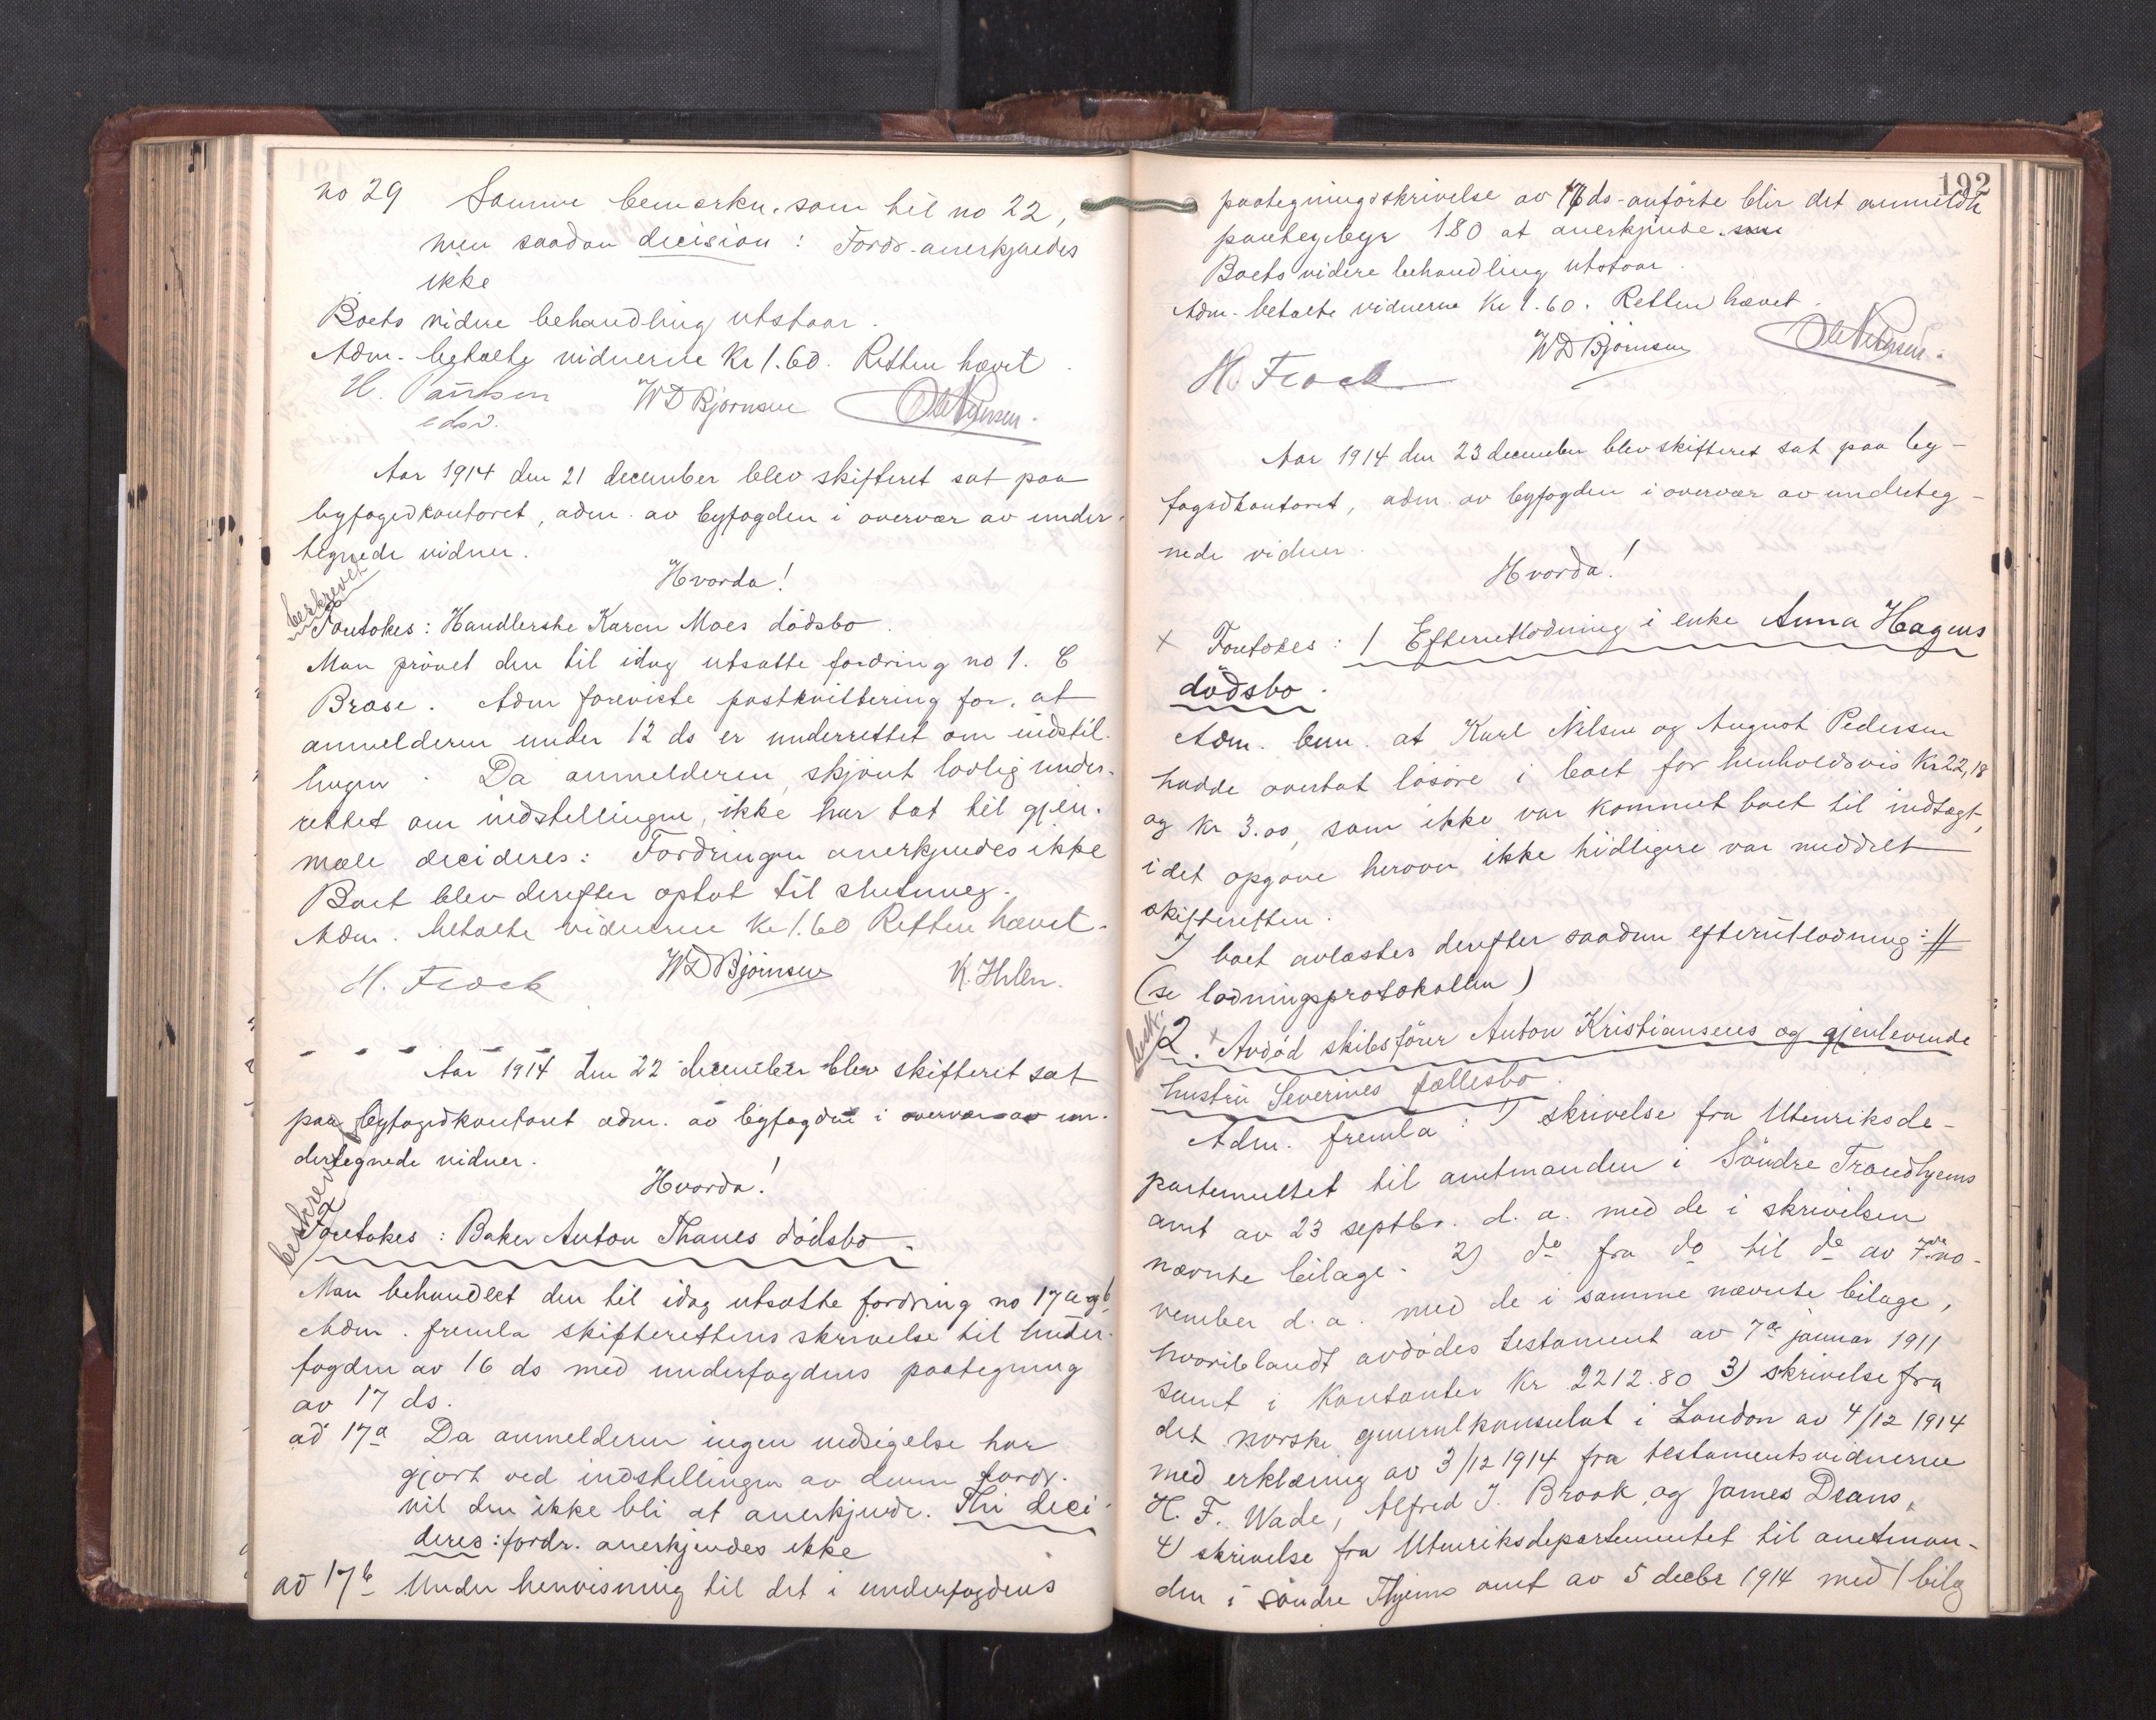 no 29 Samme bemærkn. som til no 22,
men saadan decision: Fordr. anerkjendes
ikke
Boets videre behandling utstaar.
Adm. betalte vidnerne Kr 1.60. Retten hævet.
H. Paulsen WD Bjørnsen
edsv.
Aar 1914 den 21 december blev skifteret sat paa
byfogedkontoret, adm. av byfogden i overvær av under-
tegnede vidner.
Hvorda!
beskrevet
Foretokes: Handlerske Karen Moes dödsbo.
Man prövet den til idag utsatte fordring no 1. C
Brase. Adm foreviste postkvittering for, at
anmelderen under 12 ds er underrettet om indstil-
lingen. Da anmelderen, skjönt lovlig under-
rettet om indstillingen, ikke har tat til gjen-
mæle decideres: Fordringen anerkjendes ikke
Boet blev derefter optat til slutning.
Adm. betalte vidnerne Kr 1.60 Retten hævet.
H. Frock WD Bjørnsen K. Ihlen.
Aar 1914 den 22 december blev skifteret sat
paa byfogedkontoret adm. av byfogden i overvær av un-
dertegnede vidner.
Hvorda!
beskrevet
Foretokes: Baker Anton Thanes dödsbo.
Man behandlet den til idag utsatte fordring no 17a og b.
Adm. fremla skifterettens skrivelse til under-
fogden av 16 ds med underfogdens paategning
av 17 ds.
ad 17a Da anmelderen ingen indsigelse har
gjort ved indstillingen av denne fordr.
vil den ikke bli at anerkjende. Thi deci-
deres: fordr. anerkjendes ikke
ad 17b Under henvisning til det i underfogdens
192
paategningsskrivelse av 17 ds. anförte blir det anmeldte
pantegebyr 1.80 at anerkjende.
Boets videre behandling utstaar.
Adm. betalte vidnerne Kr 1.60. Retten hævet.
H. Frock WD Bjørnsen
Aar 1914 den 23 december blev skifteret sat paa by-
fogedkontoret, adm. av byfogden i overvær av underteg-
nede vidner.
Hvorda!
x Foretokes: 1 Efterutlodning i enke Anna Hagens
dödsbo.
Adm. bem. at Karl Nilsen og August Pedersen
hadde overtat lösöre i boet for henholdsvis Kr 22,18
og Kr 3.00, som ikke var kommet boet til indtægt,
idet opgave herover ikke tidligere var meddelt
skifteretten.
I boet avlæstes derefter saadan efterutlodning: //
(se lodningsprotokollen)
besk.
2. x Avdöd skibsförer Anton Kristiansens og gjenlevende
hustru Severines fællesbo.
Adm. fremla: 1) skrivelse fra Utenriksde-
partementet til amtmanden i Söndre Trondhjems
amt av 23 septbr. d. a. med de i skrivelsen
nævnte bilage. 2) do fra do til do av 7de no-
vember d. a. med de i samme nævnte bilage,
hvoriblandt avdödes testament av 7de januar 1911
samt i kontanter Kr 2212.80 3) skrivelse fra
det norske generalkonsulat i London av 4/12 1914
med erklæring av 3/12 1914 fra testamentsvidnerne
H. F. Wade, Alfred J. Brook og James Deans,
4) skrivelse fra Utenriksdepartementet til amtman-
den i söndre Thjems amt av 5 decbr 1914 med 1 bilag